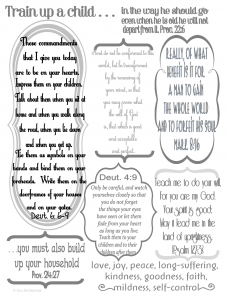 Train up a child . . .
in the way he should go
even when he is old he will not
depart from it. Prov. 22:6
These commandments
that I give you today
are to be on your hearts.
Impress them on your children.
Talk about them when you sit at
home and when you walk along
the road, when you lie down
and when you get up.
Tie them as symbols on your
hands and bind them on your
foreheads. Write them on the
doorframes of your houses
and on your gates.
Deut. 6:6-9
. . . you must also build
up your household
Prov. 24:27
not be conformed to this
world, but be transformed
by the renewing
of your mind, so that
you may prove what
the will of God
is, that which is good
and acceptable
and perfect.
Deut. 4:9
Only be careful, and watch
yourselves closely so that
you do not forget
the things your eyes
have seen or let them
fade from your heart
as long as you live.
Teach them to your
children and to their
children after them.
REALLY, OF WHAT
BENEFIT IS IT FOR
A MAN TO GAIN
THE WHOLE WORLD
AND TO FORFEIT HIS SOUL
MARK 8:36
Teach me to do your will
for you are my God.
Your spirit is good
May it lead me in the
land of uprightness.
Psalm 143:10
love, joy, peace, long-suffering,
kindness, goodness, faith,
mildness, self-control